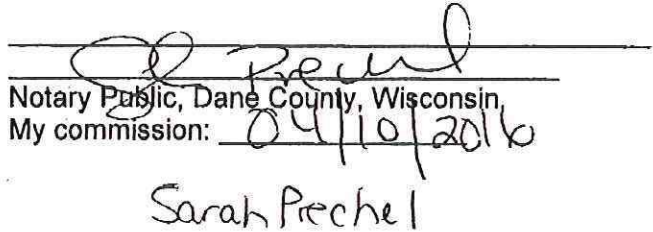 Prechel
Notary Public, Dane County, Wisconsin,
My commission: 04/10/2016
Sarah Prechel